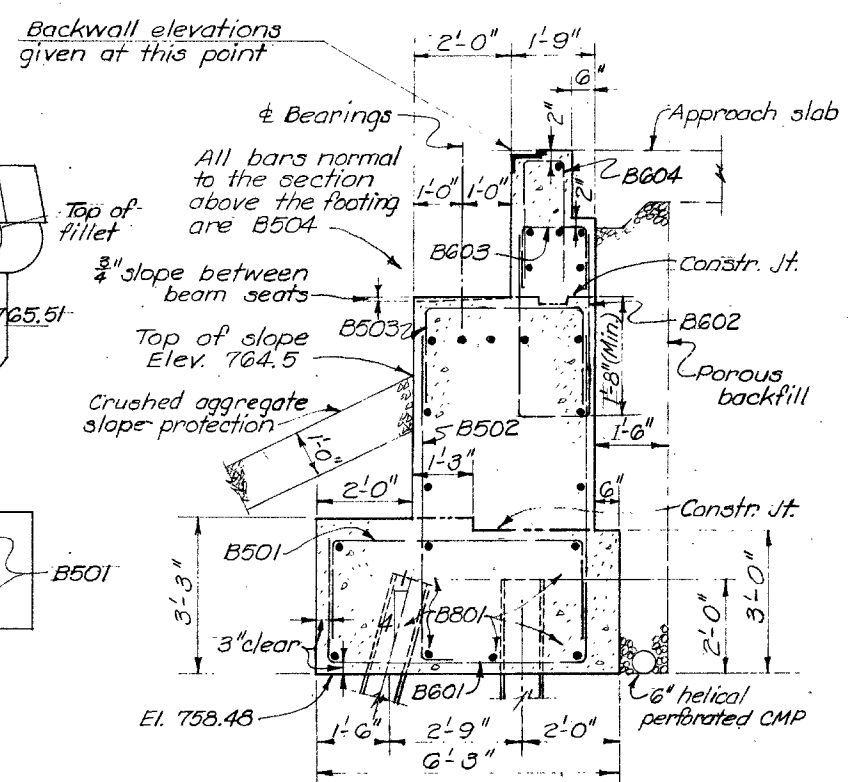 Backwall elevations
given at this point
2'-0"
1'-9"
6"
2"
Approach slab
℄ Bearings
All bars normal
to the section
above the footing
are B504
1'-0"
1'-0"
B604
2"
Top of
fillet
B603
Constr. Jt.
3/4" slope between
beam seats
765.51
B503
B602
Top of slope
Elev. 764.5
1'-8" (Min.)
Porous
backfill
Crushed aggregate
slope protection
1'-0"
B502
1'-6"
1'-3"
2'-0"
6"
Constr. Jt.
B501
B501
3'-3"
4
B801
2'-0"
3'-0"
3" clear
B601
6" helical
perforated CMP
El. 758.48
1'-6"
2'-9"
2'-0"
6'-3"